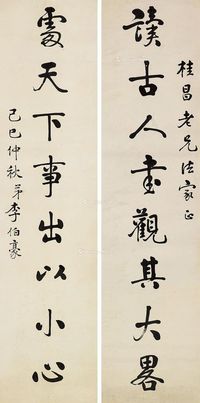 桂昌老兄法家正
讀古人書觀其大畧
處天下事出以小心
己巳仲秋弟李伯豪